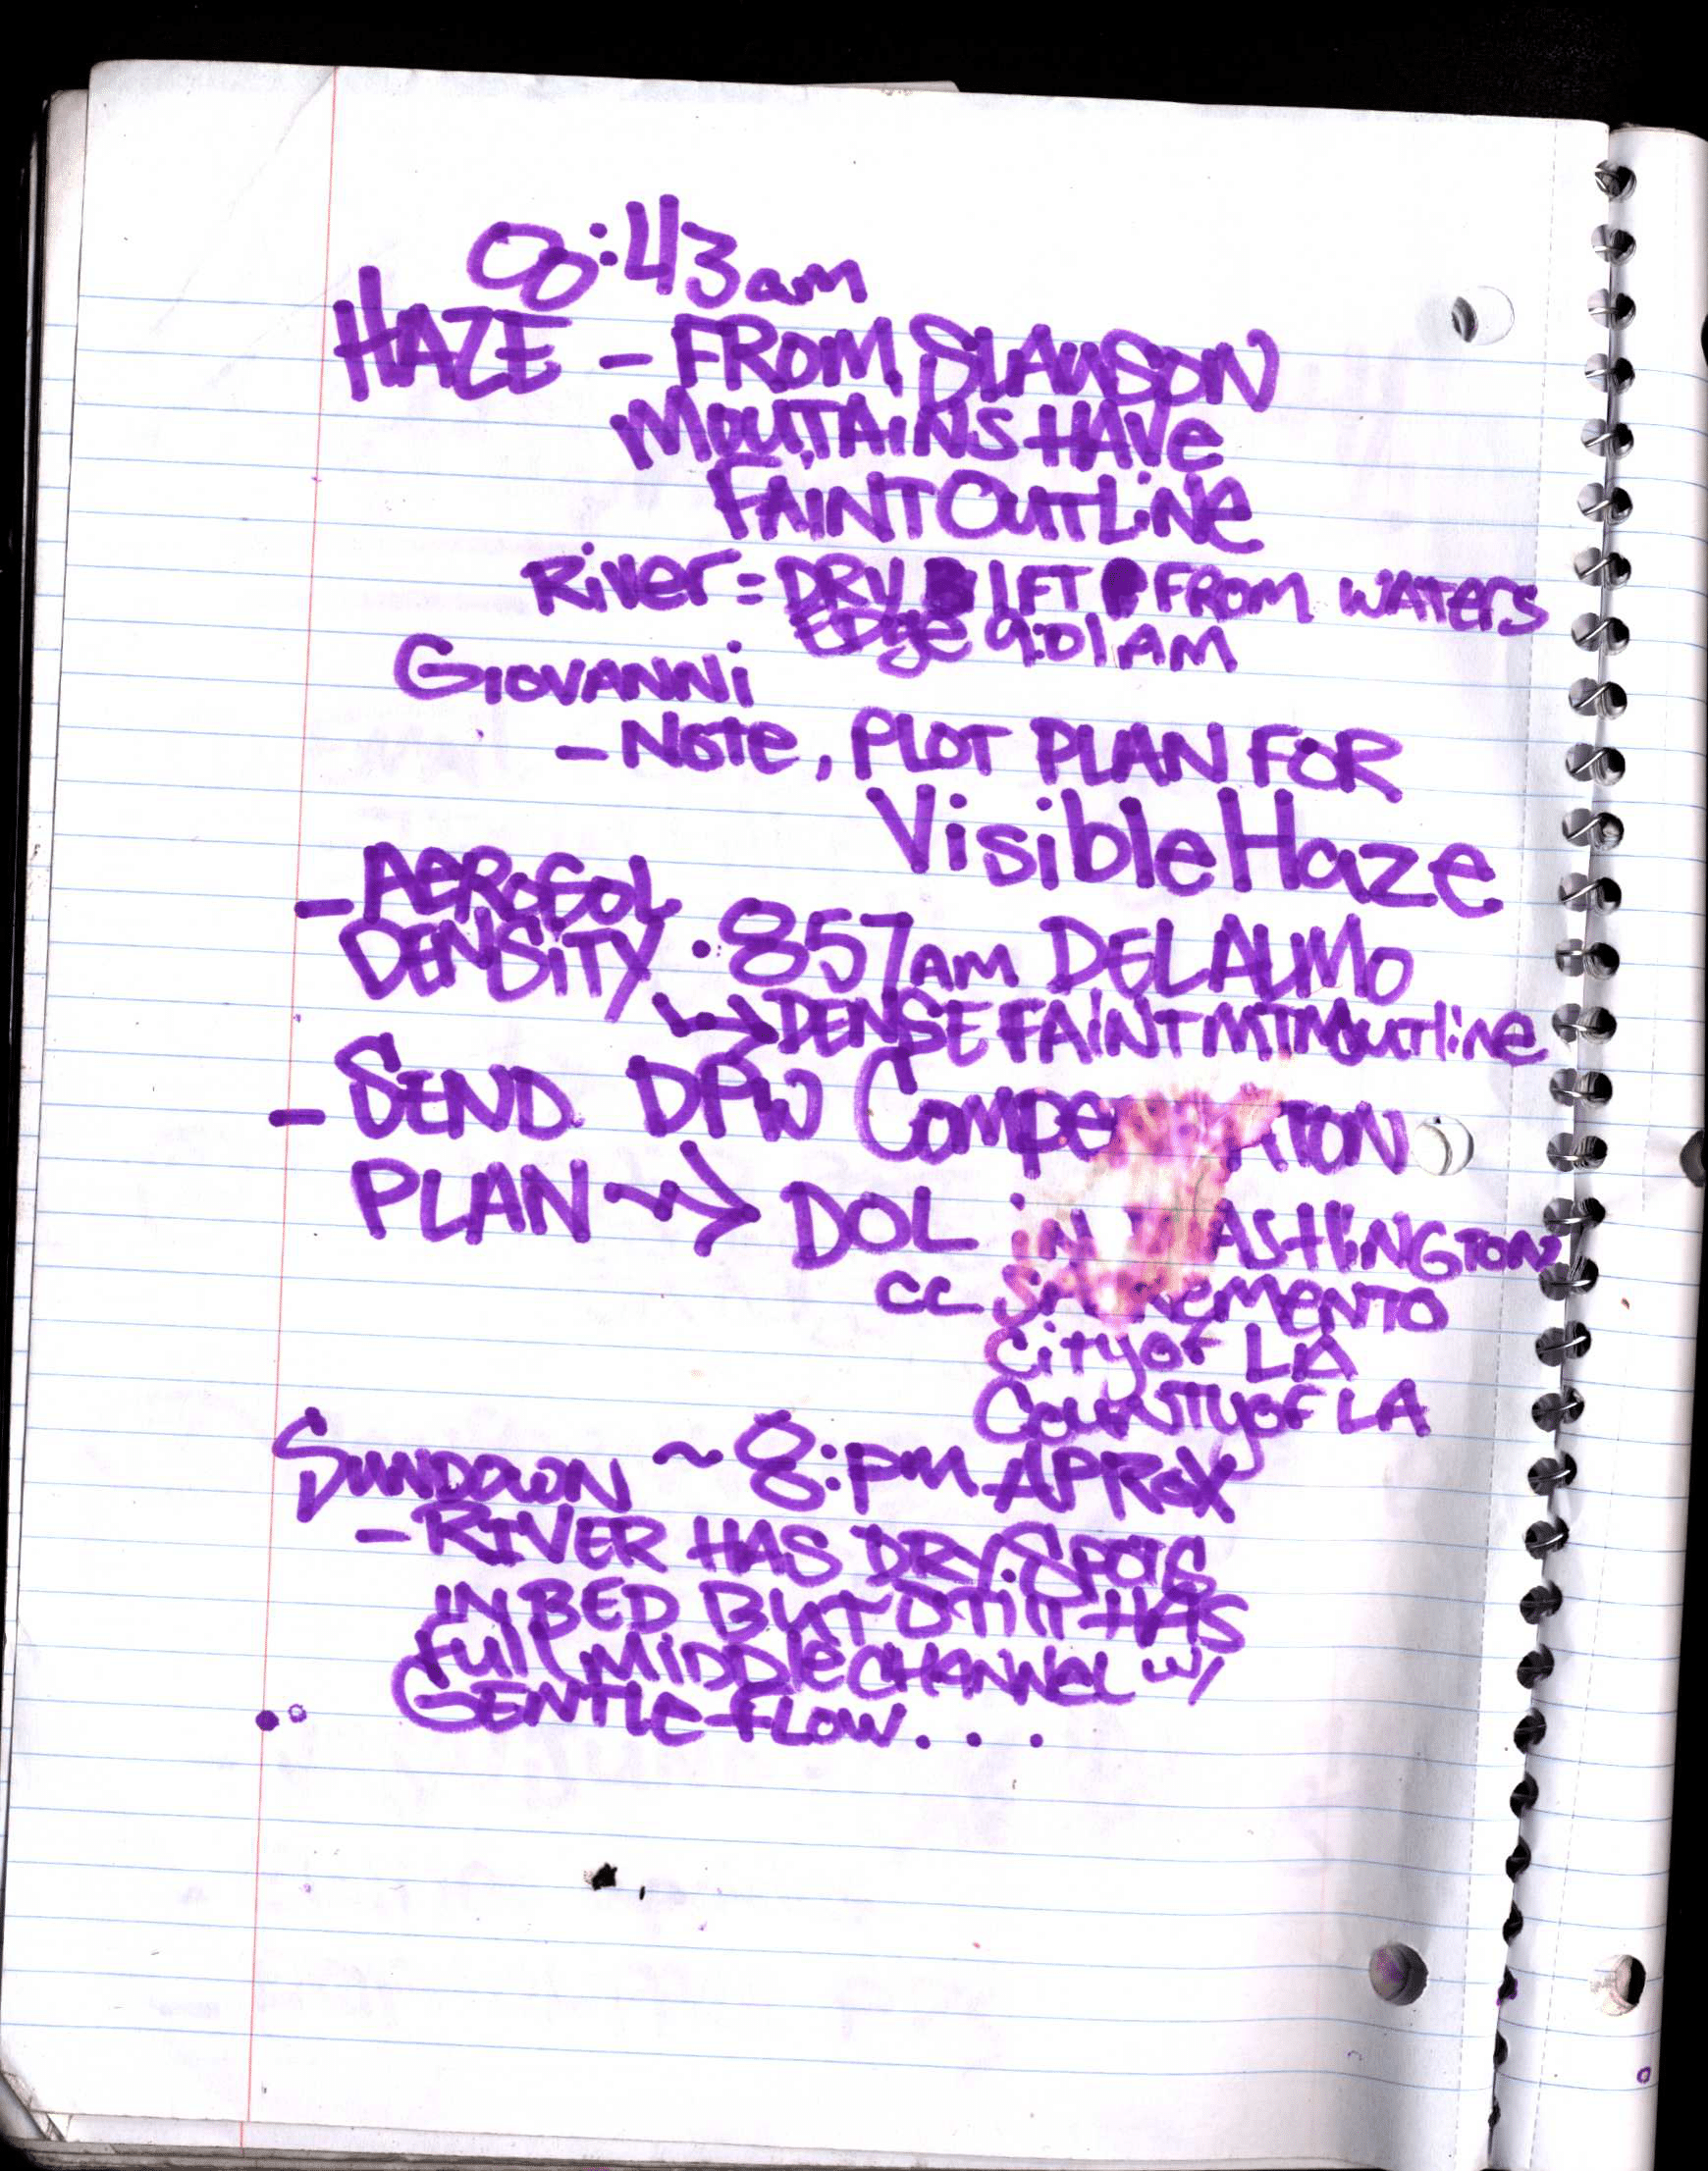 08:43am
HAZE - FROM SLAUSON
MOUTAINS HAVE
FAINT OUTLINE
RIVER = DRY 1FT FROM WATERS
EDge 9:01AM
GIOVANNI
- NOTE, PLOT PLAN FOR
Visible Haze
- AEROSOL
DENSITY • 857AM DELALIMO
↳ DENSE FAINT MTN OUTLINE
- SEND DPW COMPE ATION
PLAN → DOL IN ASHINGTON
CC SA REMENTO
City OF LA
COUNTY OF LA
SUNDOWN ~ 8:PM APROX
- RIVER HAS DRY SPOTS
IN BED BUT STILL HAS
FULL MIDDLE CHANNEL W/
GENTLE FLOW . . .